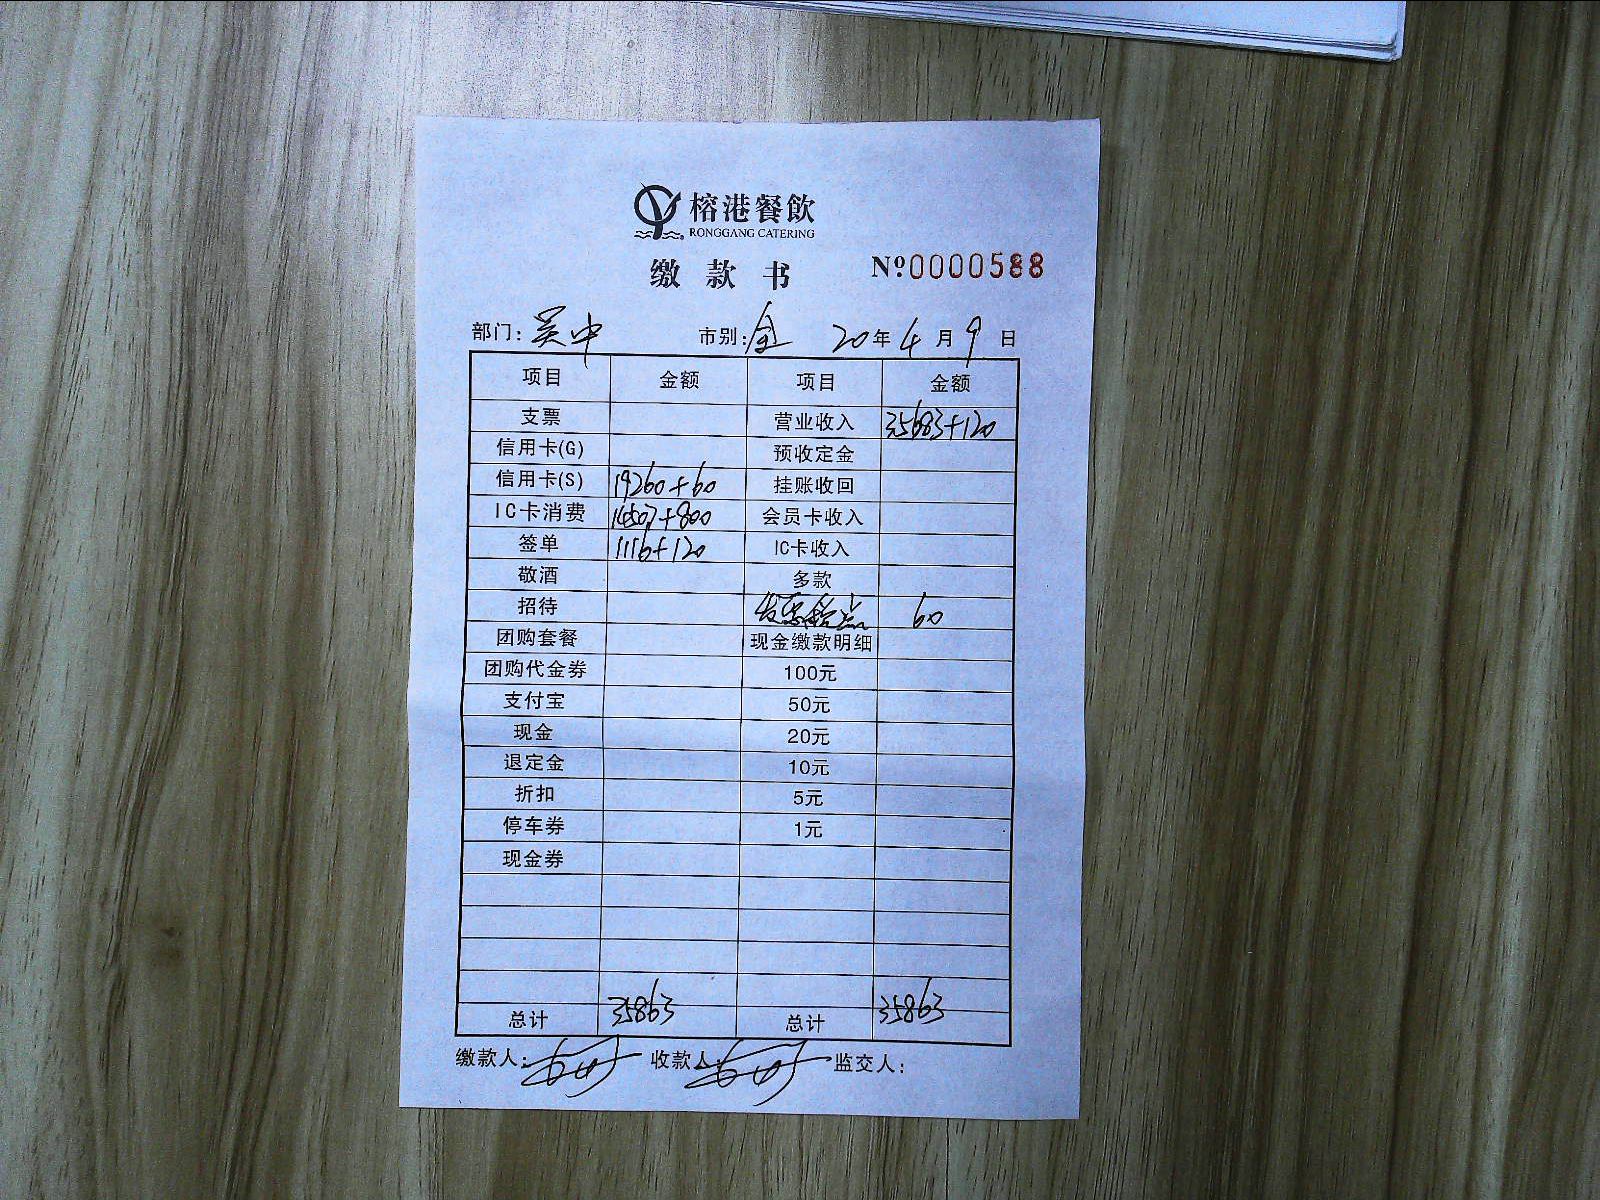 榕港餐飲
RONGGANG CATERING
缴款书 №0000588
部门: 吴中 市别: 全 20年4月9日
项目 金额 项目 金额
支票 营业收入 35683+120
信用卡(G) 预收定金
信用卡(S) 19260+60 挂账收回
IC卡消费 14507+800 会员卡收入
签单 1116+120 IC卡收入
敬酒 多款
招待 发票税点 60
团购套餐 现金缴款明细
团购代金券 100元
支付宝 50元
现金 20元
退定金 10元
折扣 5元
停车券 1元
现金券
总计 35863 总计 35863
缴款人: 收款人: 监交人: